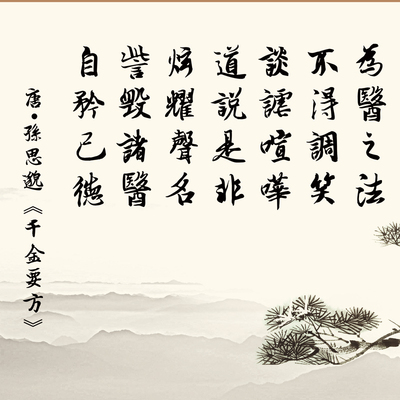 為醫之法
不得調笑
談謔喧嘩
道說是非
炫耀聲名
訾毀諸醫
自矜己德
唐•孫思邈《千金要方》